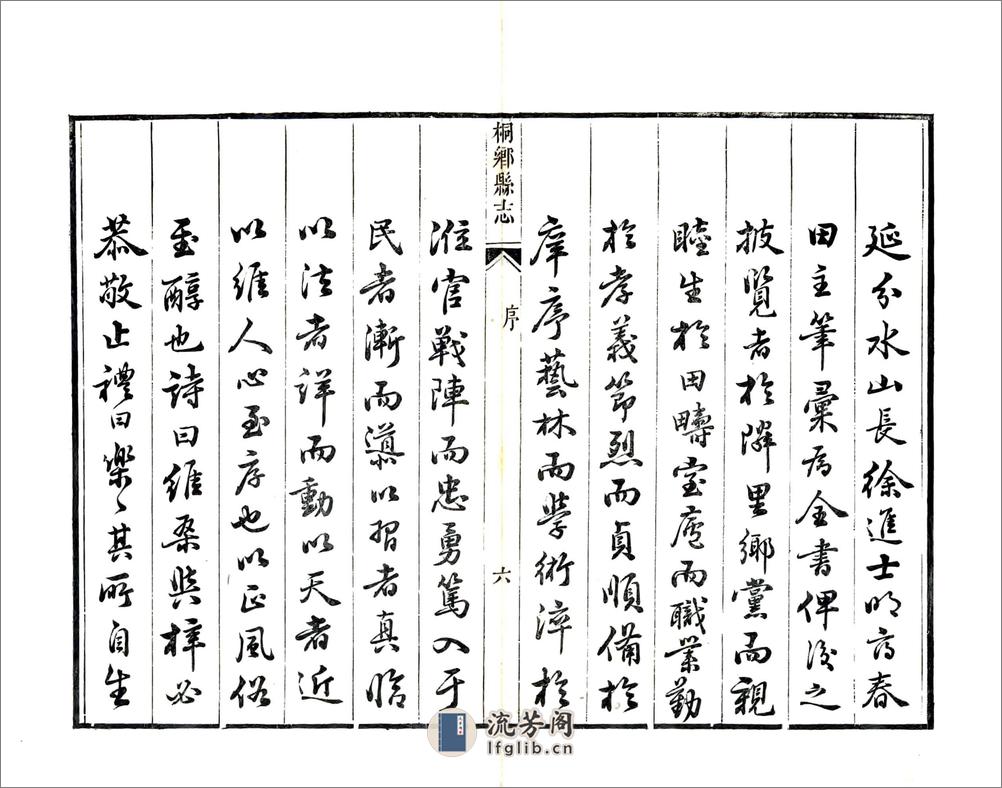 延分水山長徐進士春
田主筆彙為全書俾後之
披覽者於隣里鄉黨而親
睦生於田疇室廬而職業勤
於孝義節烈而貞順備於
庠序藝林而學術淬於
桐鄉縣志
序
六
涖官戰陣而忠勇篤入于
民者漸而以習者真臨
以法者詳而動以天者近
以維人心至厚也以正風俗
至醇也詩曰維桑與梓必
恭敬止禮曰樂〻其所自生
流芳阁
lfglib.cn